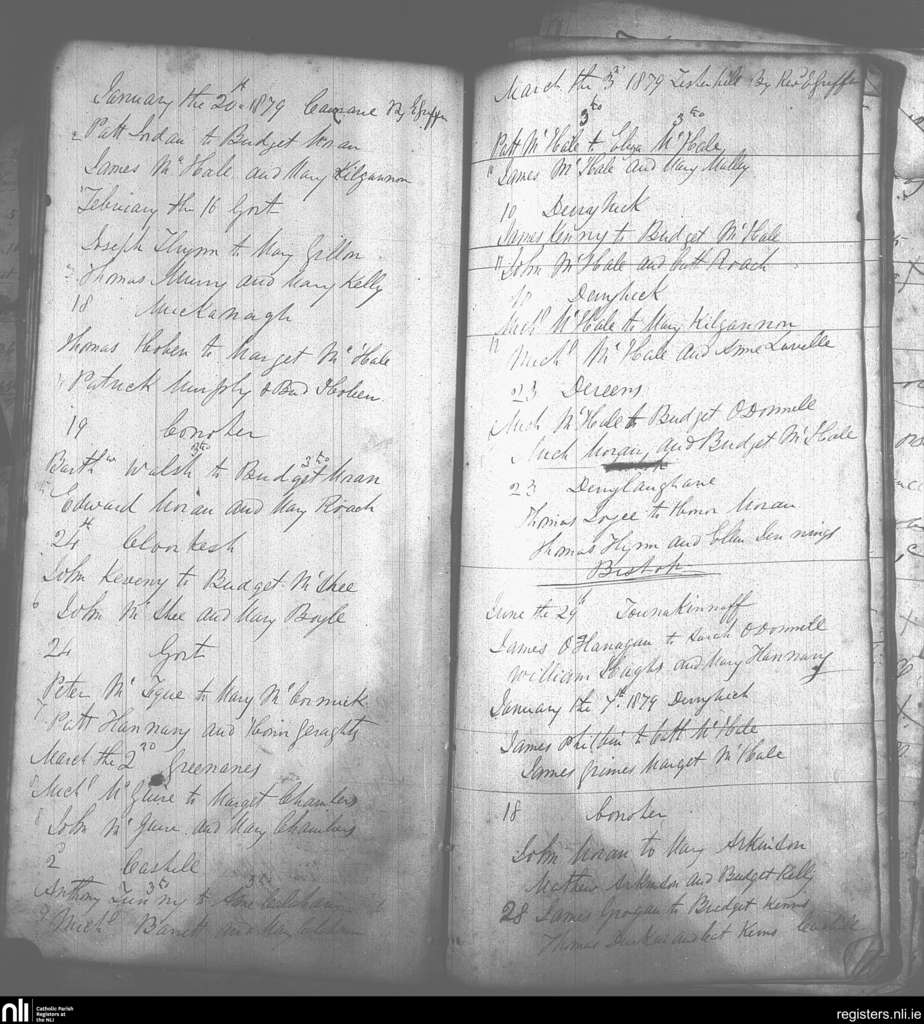 January the 20th 1879 By
Patt Jordan to Budget Moran
James Mc Hale and Mary Kilgannon
February the 16 Gort
Joseph Flynn to Mary Gillon
Thomas Murry and Mary Kelly
18 Muckanagh
Thomas Hoben to Marget Mc Hale
Patrick Murphy & Bud Hoben
19 Conoher
3to 3to
Barthw Walsh to Budget Moran
Edward Moran and Mary Roach
24th Cloonkesh
John Keveny to Budget Mc Shee
John Mc Shee and Mary Boyle
24 Gort
Peter Mc Tigue to Mary Mc Cormick
Patt Hannany and Geraghty
March the 2nd Greenanes
Michl Mc Guire to Marget Chambers
John Mc Guire and Mary Chambers
2nd Cashill
3to 3to
Anthony to Anne
Michl Barrett and Mary
March the 3rd 1879 By Revd E Griffin
3to 3to
Patt Mc Hale to Eliza Mc Hale
James Mc Hale and Mary Mally
10 Derryhick
James to Budget Mc Hale
John Mc Hale and Catt Roach
10 Derryhick
Michl Mc Hale to Mary Kilgannon
Michl Mc Hale and Anne Lavelle
23 Dereens
Mich Mc Hale to Budget O Donnell
Mich Moran and Budget Mc Hale
23
Thomas Joyce to Honor Moran
Thomas Flynn and Ellen Jennings
Bishop
June the 29th Tounakinnoff
James O Flanagan to Sarah O Donnell
William and Mary Hannany
January the 7th 1879 Derryhick
James Philbin to Catt Mc Hale
James Grimes Marget Mc Hale
18 Conoher
John Moran to Mary Arkinson
Mathew Arkinson and Budget Kelly
28 James Grogan to Budget Kerins
Thomas and Cat Kerins
nli
Catholic Parish
Registers at
the NLI
registers.nli.ie